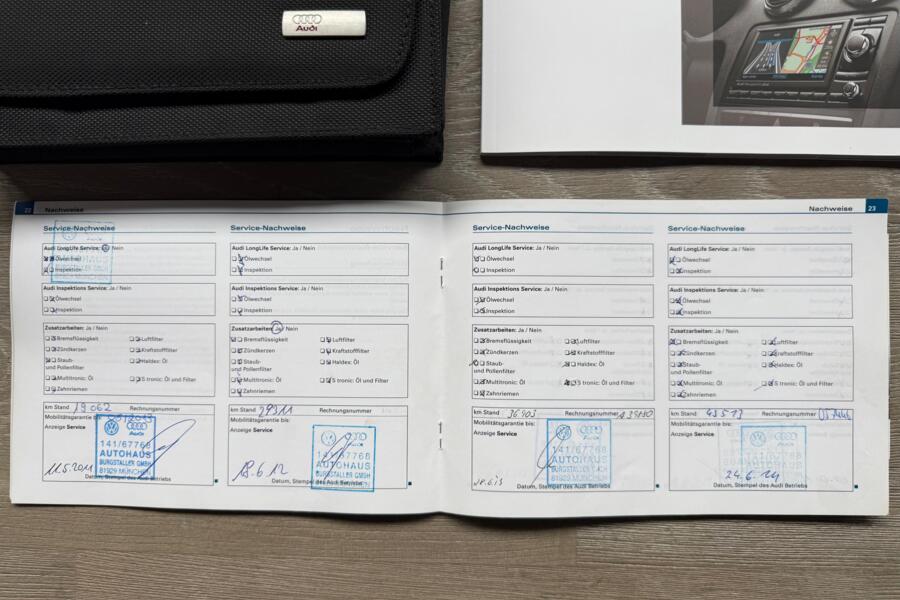 Audi
22 Nachweise
Service-Nachweise
Audi LongLife Service: Ja / Nein
Ölwechsel
Inspektion
Audi Inspektions Service: Ja / Nein
Ölwechsel
Inspektion
Zusatzarbeiten: Ja / Nein
Bremsflüssigkeit Luftfilter
Zündkerzen Kraftstofffilter
Staub- Haldex: Öl
und Pollenfilter
Multitronic: Öl S tronic: Öl und Filter
Zahnriemen
km Stand 19062 Rechnungsnummer
Mobilitätsgarantie bis:
Anzeige Service
Audi
141/67768
AUTOHAUS
BURGSTALLER GMBH
81929 MÜNCHEN
11.5.2011
Datum, Stempel des Audi Betriebs
Service-Nachweise
Audi LongLife Service: Ja / Nein
Ölwechsel
Inspektion
Audi Inspektions Service: Ja / Nein
Ölwechsel
Inspektion
Zusatzarbeiten: Ja / Nein
Bremsflüssigkeit Luftfilter
Zündkerzen Kraftstofffilter
Staub- Haldex: Öl
und Pollenfilter
Multitronic: Öl S tronic: Öl und Filter
Zahnriemen
km Stand 29311 Rechnungsnummer
Mobilitätsgarantie bis:
Anzeige Service
Audi
141/67768
AUTOHAUS
BURGSTALLER GMBH
81929 MÜNCHEN
18.6.12
Datum, Stempel des Audi Betriebs
Nachweise 23
Service-Nachweise
Audi LongLife Service: Ja / Nein
Ölwechsel
Inspektion
Audi Inspektions Service: Ja / Nein
Ölwechsel
Inspektion
Zusatzarbeiten: Ja / Nein
Bremsflüssigkeit Luftfilter
Zündkerzen Kraftstofffilter
Staub- Haldex: Öl
und Pollenfilter
Multitronic: Öl S tronic: Öl und Filter
Zahnriemen
km Stand 36903 Rechnungsnummer
Mobilitätsgarantie bis:
Anzeige Service
Audi
141/67768
AUTOHAUS
BURGSTALLER GMBH
81929 MÜNCHEN
18.6.13
Datum, Stempel des Audi Betriebs
Service-Nachweise
Audi LongLife Service: Ja / Nein
Ölwechsel
Inspektion
Audi Inspektions Service: Ja / Nein
Ölwechsel
Inspektion
Zusatzarbeiten: Ja / Nein
Bremsflüssigkeit Luftfilter
Zündkerzen Kraftstofffilter
Staub- Haldex: Öl
und Pollenfilter
Multitronic: Öl S tronic: Öl und Filter
Zahnriemen
km Stand 43513 Rechnungsnummer
Mobilitätsgarantie bis:
Anzeige Service
141/67768
AUTOHAUS
BURGSTALLER GMBH
24.6.14
Datum, Stempel des Audi Betriebs